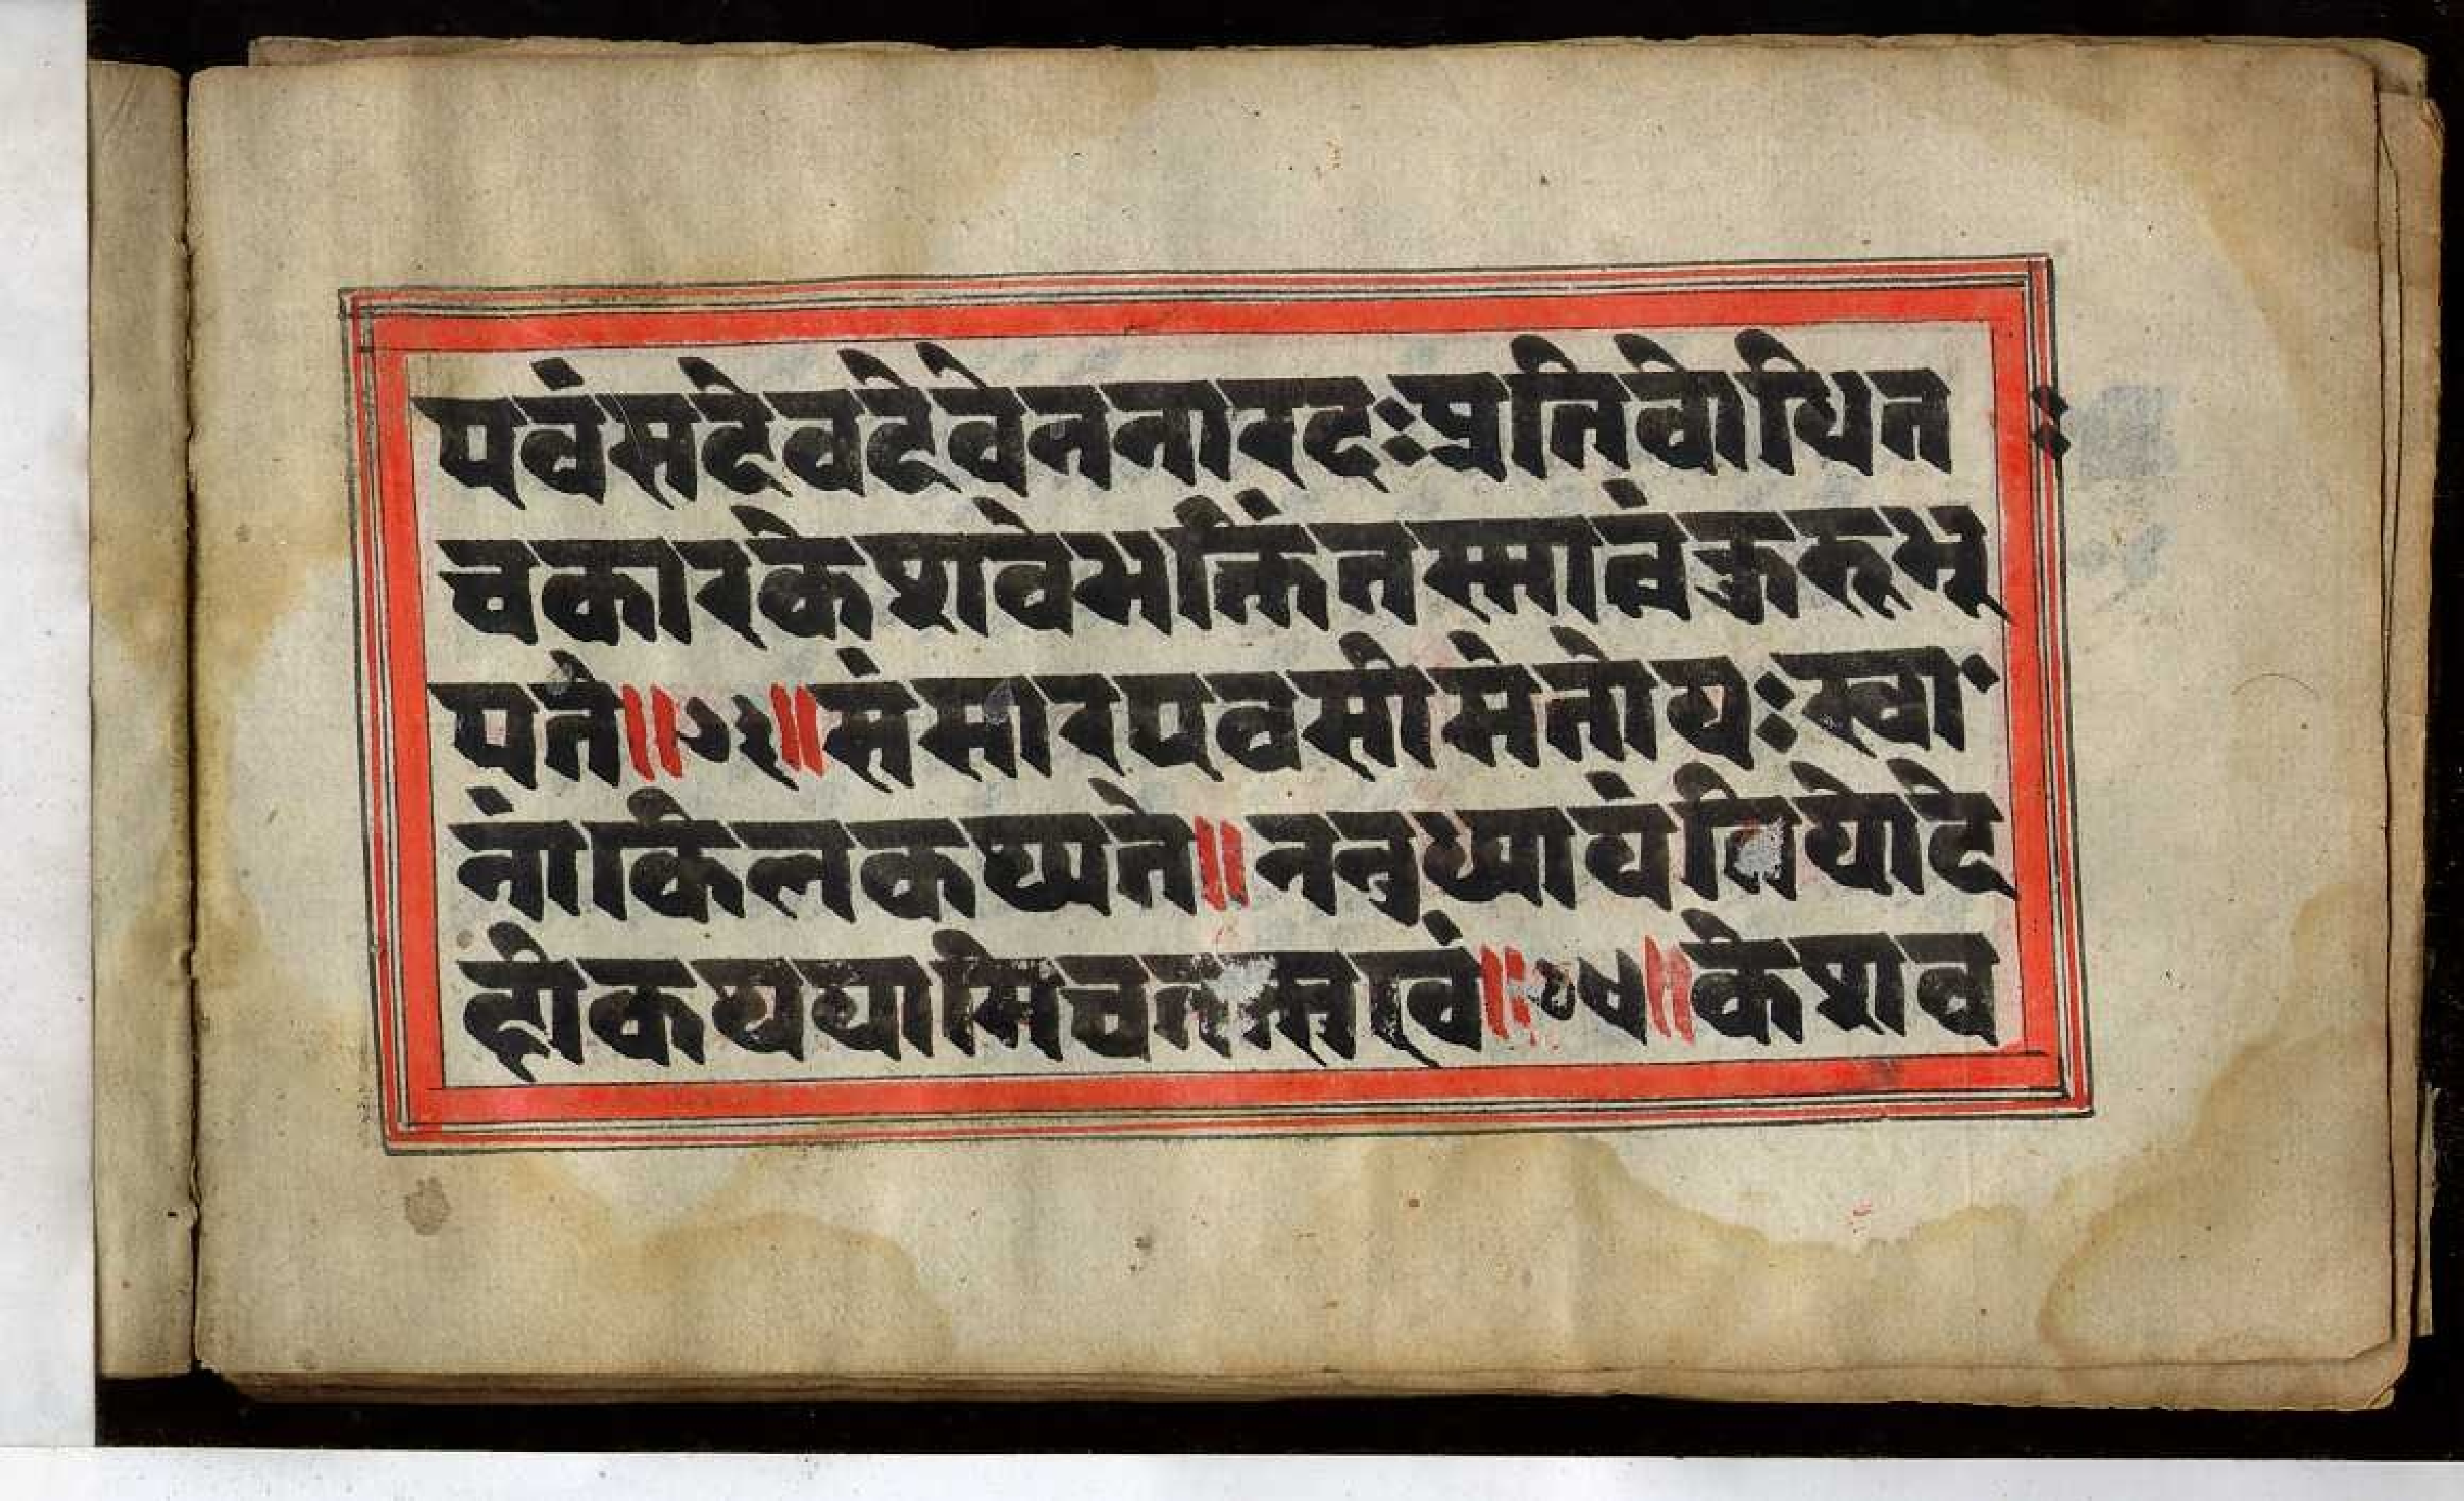 एवं स देवदेवेन नारदः प्रतिबोधितः
चकार केशवे भक्तिं तस्मात्त्वं कुरु भू
पते॥७३॥ संसारपवसीमेतो यः स्वा
नां किल कथ्यते॥ ननु
ही कथ यामि च त स्तवं॥ केशव